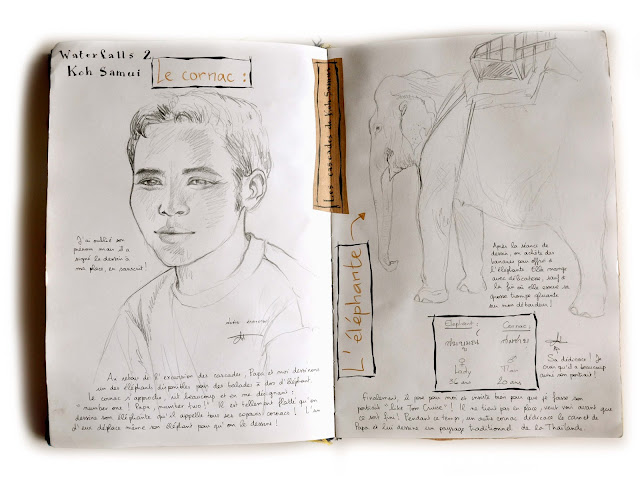 Waterfalls 2
Koh Samui
Le cornac :
J'ai oublié son
prénom mais il a
signé le dessin à
ma place, en souriant !
Au retour de l'excursion des cascades, Papa et moi dessinons
un des éléphants disponibles pour des balades à dos d'éléphant.
Le cornac s'approche, rit beaucoup et en me désignant :
"number one ! Papa, number two !" Il est tellement flatté qu'on
dessine son éléphante qu'il appelle tous ses copains cornacs ! L'un
d'eux déplace même son éléphant pour qu'on le dessine !
Les cascades de Koh Samui
L'éléphante
Après la séance de
dessin, on achète des
bananes pour offrir à
l'éléphante. Elle mange
avec délicatesse, sauf à
la fin où elle essuie sa
grosse trompe gluante
sur mon débardeur !
Elephant : Cornac :
♀ ♂
Lady
36 ans 20 ans
Sa dédicace ! Je
crois qu'il a beaucoup
aimé son portrait !
Finalement, il pose pour moi et insiste bien pour que je fasse son
portrait "like Tom Cruise" ! Il ne tient pas en place, veut voir avant que
ce soit fini ! Pendant ce temps, un autre cornac dédicace le carnet de
Papa et lui dessine un paysage traditionnel de la Thaïlande.